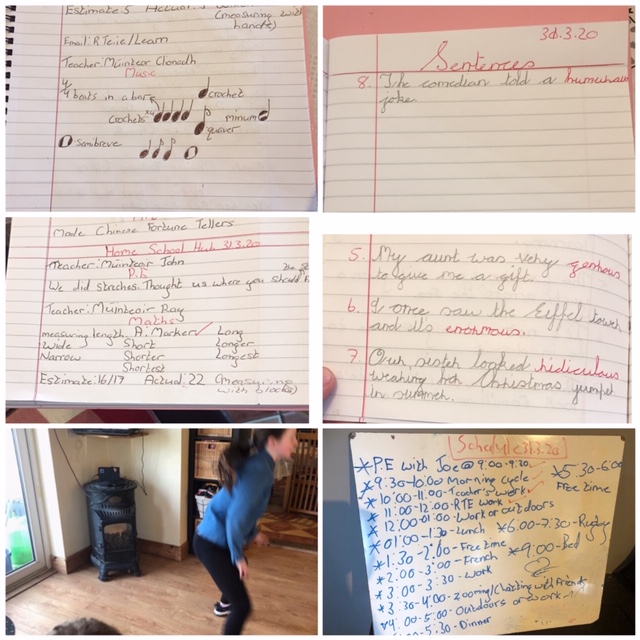 Estimate 5 Actual:
(measuring with
hands)
Email: RTEjr/Learn
Teacher: Múinteoir Clíonadh
Music
4/4 beats in a bar
crochet
crochets x4
minum
quaver
Semibreve
31.3.20
Sentences
8. The comedian told a humurous
joke
Made Chinese Fortune Tellers
Home School Hub 31.3.20
Teacher: Múinteoir John
P.E
We did straches. Thought us where you should
Teacher: Múinteoir Ray
Maths
measuring length A. Marker Long
Wide Short Longer
Narrow Shorter Longest
Shortest
Estimate: 16/17 Actual: 22 (Measuring
with blocks)
5. My aunt was very genrous
to give me a gift.
6. I once saw the Eiffel tower
and its enormous.
7. Our sister looked ridiculous
wearing her Christmas jumper
in summer.
Schedule 31.3.20
*P.E with Joe @ 9:00-9:30
*9:30-10:00 Morning Cycle
*10:00-11:00-Teacher's work
*11:00-12:00-RTE work
*12:00-01:00-Work or outdoors
*01:00-1:30-Lunch
*1:30-2:00-Free time
*2:00-3:00-French
*3:00-3:30-work
*3:30-4:00-zooming/Chatting with Friends
*4:00-5:00-Outdoors or work
5:30-Dinner
*5:30-6:00
Free time
*6:00-7:30-Rugby
*9:00-Bed